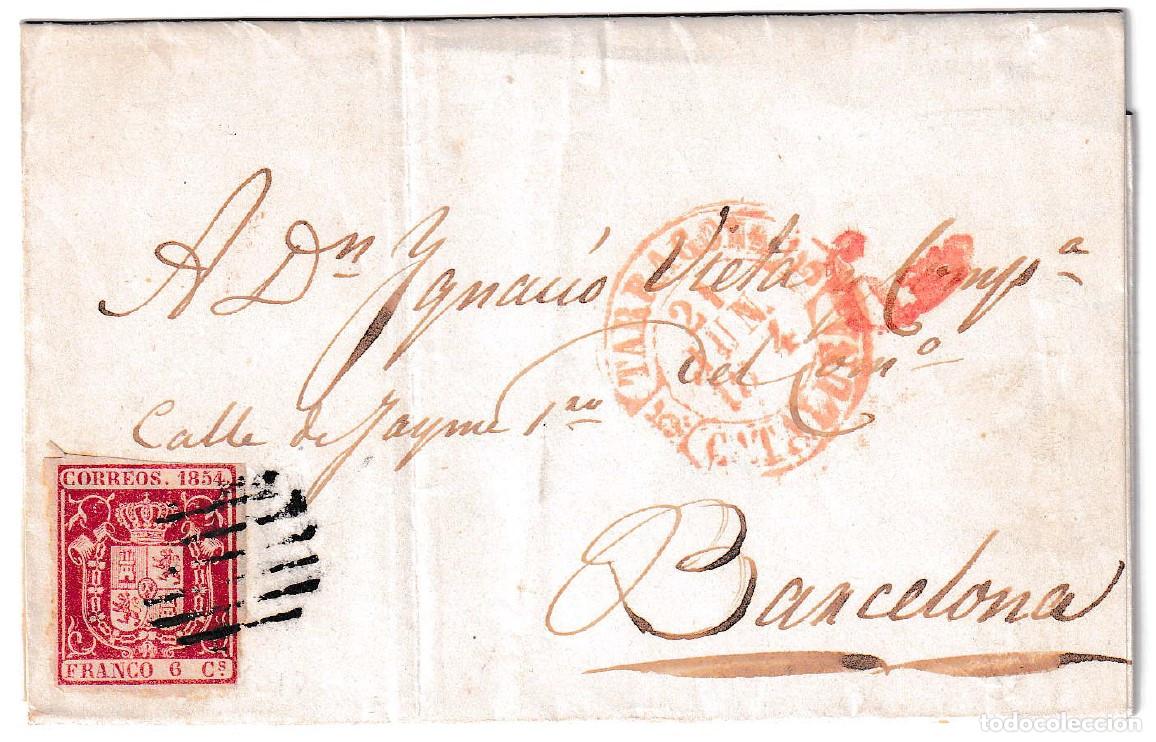 A Dn Ygnació Vieta y Compª
del Comº
Calle de Jayme 1ro
CORREOS. 1854
FRANCO 6 Cs
TARRAGONA
JUN.
CATALUÑA
Barcelona
todocolección